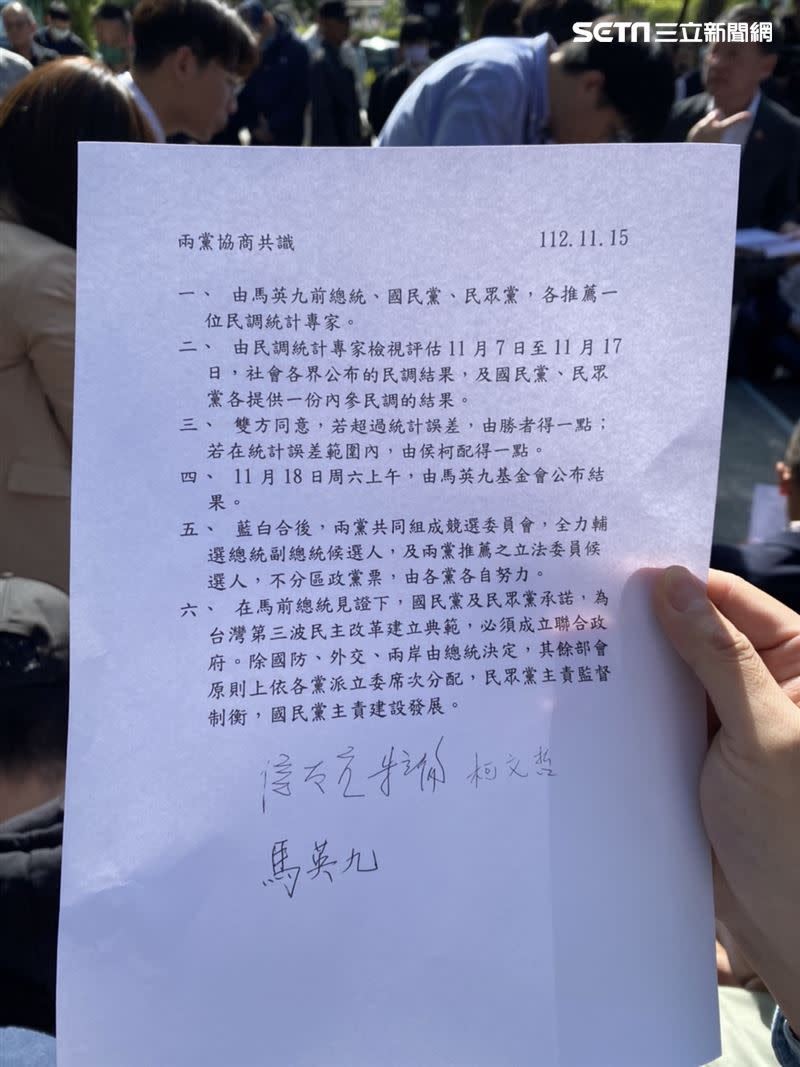 SETN三立新聞網
兩黨協商共識 112.11.15
一、 由馬英九前總統、國民黨、民眾黨，各推薦一
位民調統計專家。
二、 由民調統計專家檢視評估11月7日至11月17
日，社會各界公布的民調結果，及國民黨、民眾
黨各提供一份內參民調的結果。
三、 雙方同意，若超過統計誤差，由勝者得一點；
若在統計誤差範圍內，由侯柯配得一點。
四、 11月18日周六上午，由馬英九基金會公布結
果。
五、 藍白合後，兩黨共同組成競選委員會，全力輔
選總統副總統候選人，及兩黨推薦之立法委員候
選人，不分區政黨票，由各黨各自努力。
六、 在馬前總統見證下，國民黨及民眾黨承諾，為
台灣第三波民主改革建立典範，必須成立聯合政
府。除國防、外交、兩岸由總統決定，其餘部會
原則上依各黨派立委席次分配，民眾黨主責監督
制衡，國民黨主責建設發展。
侯友宜 朱立倫 柯文哲
馬英九